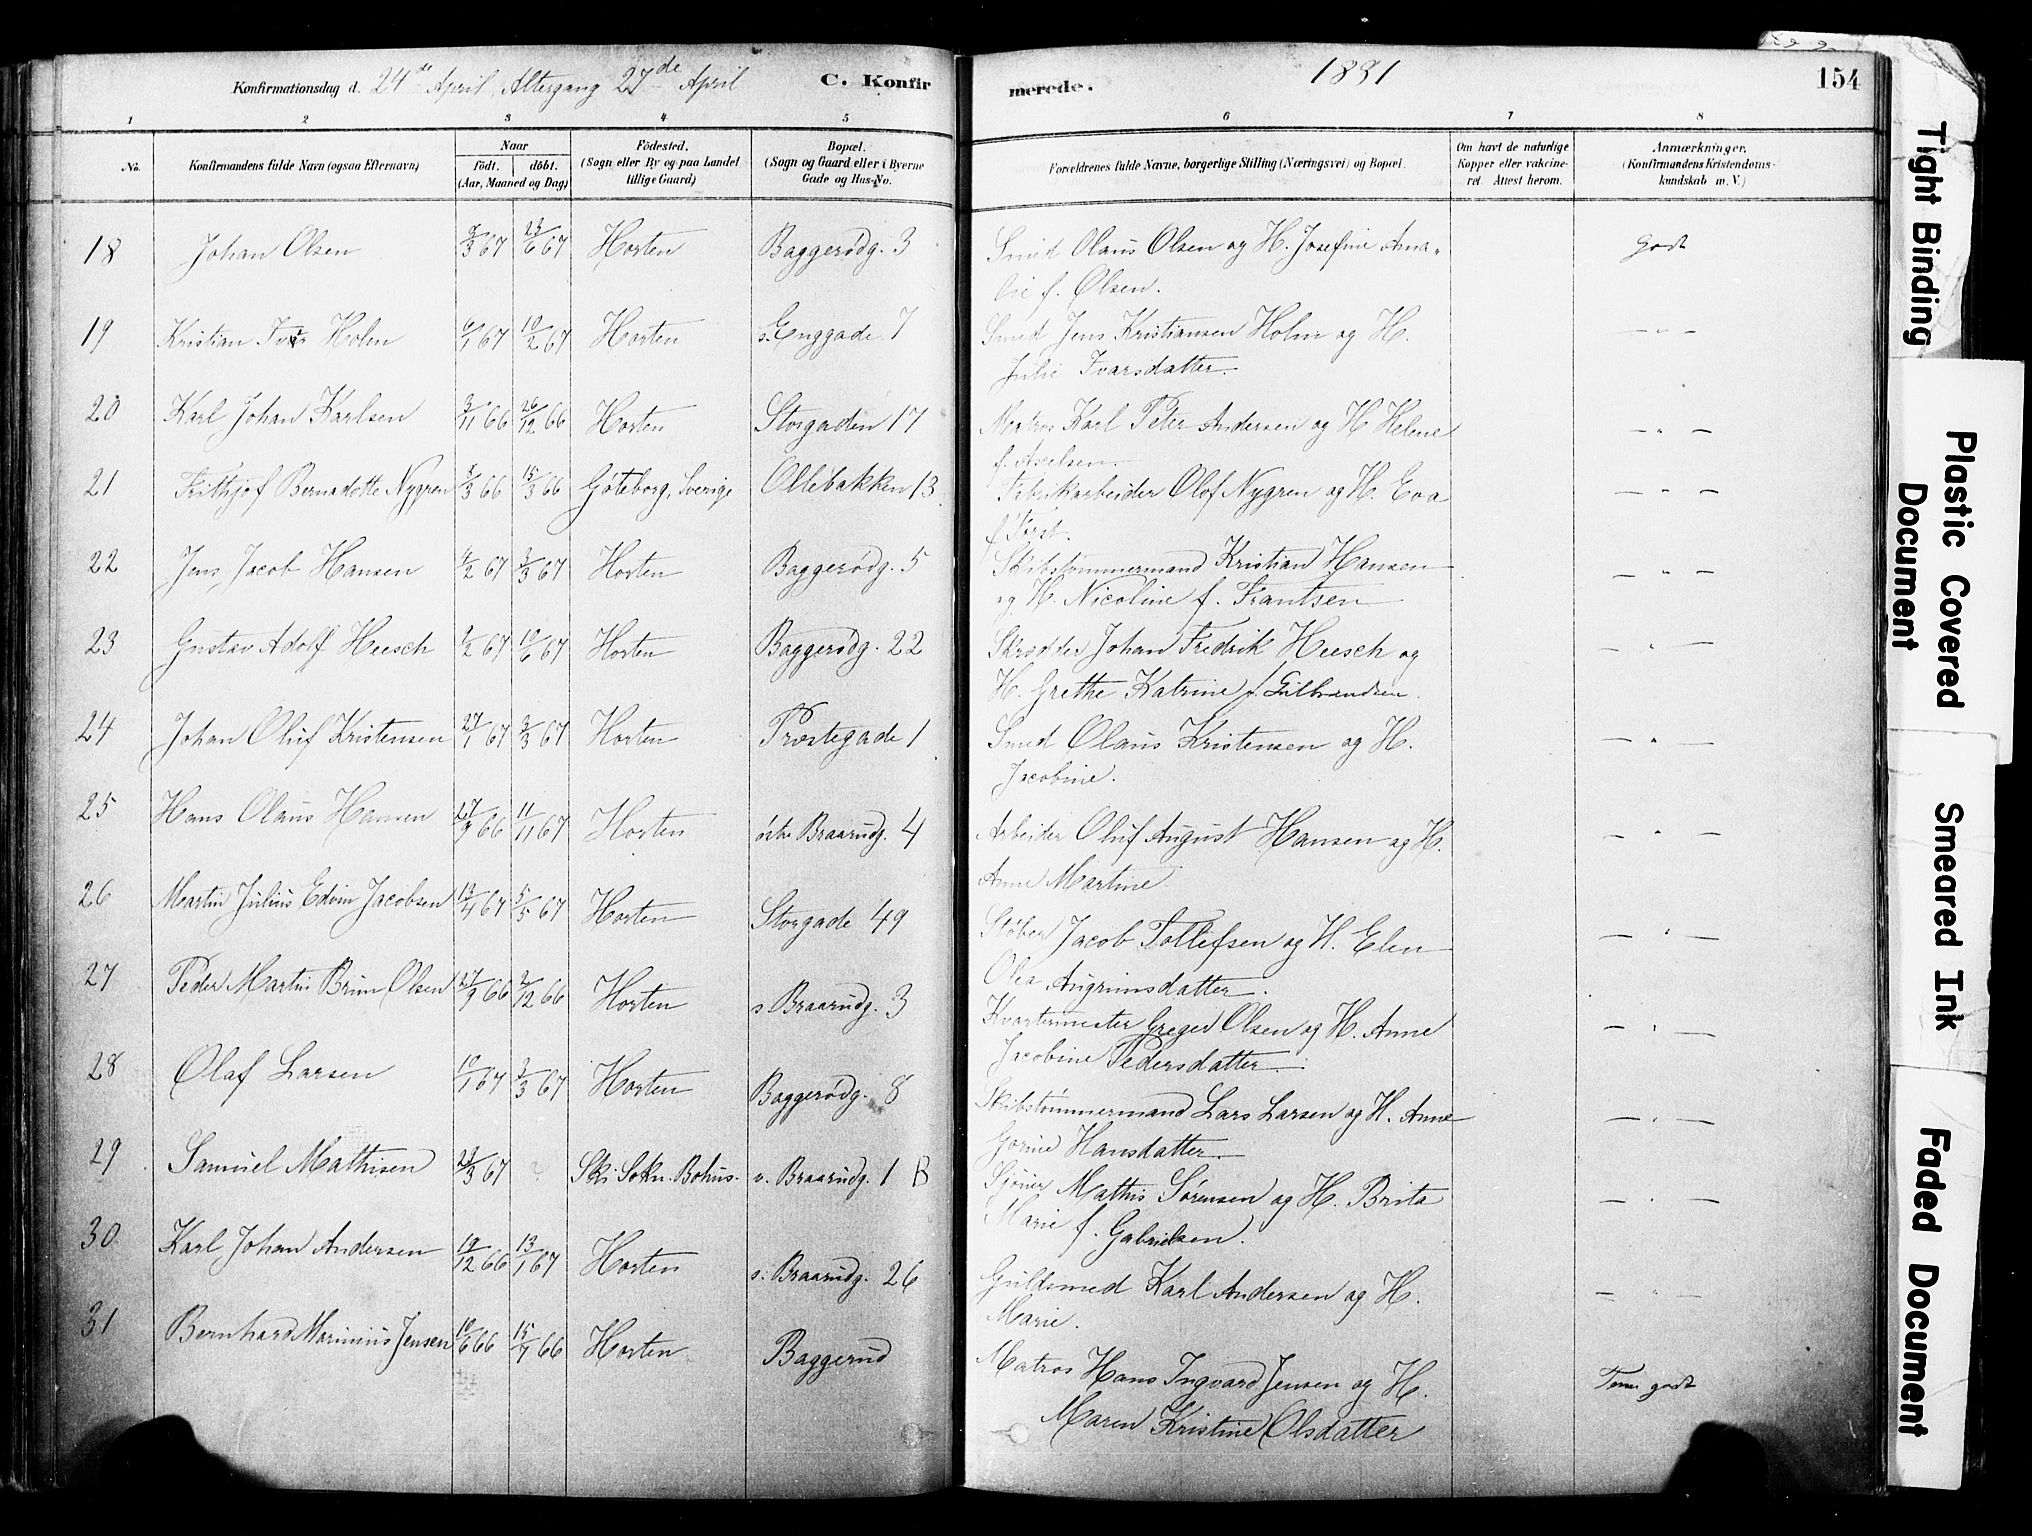 Konfirmationsdag d. 24de April, Altergang 27de April C. Konfir
merede. 1881 154
1 2 3 4 5 6 7 8
No. Konfirmandens fulde Navn (ogsaa Efternavn) Naar födt. döbt. (Aar, Maaned og Dag) Födested. (Sogn eller By og paa Landet tillige Gaard) Bopæl. (Sogn og Gaard eller i Byerne Gade og Hus-No. Forældrenes fulde Navne, borgerlige Stilling (Næringsvei) og Bopæl. Om havt de naturlige Kopper eller vakcineret. Attest herom. Anmærkninger. (Konfirmandens Kristendomskundskab m. V.)
18 Johan Olsen 3 67 23/6 67 Horten Baggerødg. 3 Smed Olaus Olsen og H. Josefine Ama-
lie f. Olsen. Godt
19 Kristian Ivar Holm 6/1 67 10/2 67 Horten s. Enggade 7 Smed Jens Kristiansen Holm og H.
Julie Ivarsdatter. — " —
20 Karl Johan Karlsen 3/11 66 26/12 66 Horten Storgaden 17 Matros Karl Peter Andersen og H Helene
f. Axelsen. — " —
21 Frithjof Bernadotte Nygren 3/3 66 15/3 66 Göteborg, Sverige Ollebakken 13 Fabrikarbeider Olof Nygren og H. Eva
f. — " —
22 Jens Jacob Hansen 4/2 67 3/3 67 Horten Baggerødg. 5 Skibstømmermand Kristian Hansen
og H. Nicoline f. Frantsen — " —
23 Gustav Adolf Heesch 2/2 67 10/6 67 Horten Baggerødg. 22 Skrædder Johan Fredrik Heesch og
H. Grethe Katrine f. Gulbrandsen. — " —
24 Johan Oluf Kristensen 27/1 67 3/3 67 Horten Præstegade 1 Smed Olaus Kristensen og H.
Jacobine. — " —
25 Hans Olaus Hansen 27/9 66 11/11 67 Horten østre Braarudg. 4 Arbeider Oluf August Hansen og H.
Anne Martine. — " —
26 Martin Julius Edvin Jacobsen 13/4 67 5/5 67 Horten Storgade 49 Støber Jacob Tollefsen og H. Elen
Olea Angrimsdatter. — " —
27 Peder Martin Brun Olsen 27/9 66 2/12 66 Horten s. Braarudg. 3 Kvartermester Greger Olsen og H. Anne
Jacobine Pedersdatter. — " —
28 Olaf Larsen 10/1 67 3/3 67 Horten Baggerødg. 8 Skibstømmermand Lars Larsen og H. Anne
Gorine Hansdatter. — " —
29 Samuel Mathisen 23/3 67 ? Ski Sokn. Bohus. v. Braarudg. 1 B Sjømd Mathis Sørensen og H. Brita
Marie f. Gabrielsen. — " —
30 Karl Johan Andersen 19/12 66 13/1 67 Horten s. Braarudg. 26 Guldsmed Karl Andersen og H.
Marie. — " —
31 Bernhard Marinius Jensen 10/6 66 15/7 66 Horten Baggerud Matros Hans Ingvard Jensen og H.
Maren Kristine Olsdatter Tem. godt
Tight Binding
Plastic Covered Document
Smeared Ink
Faded Document